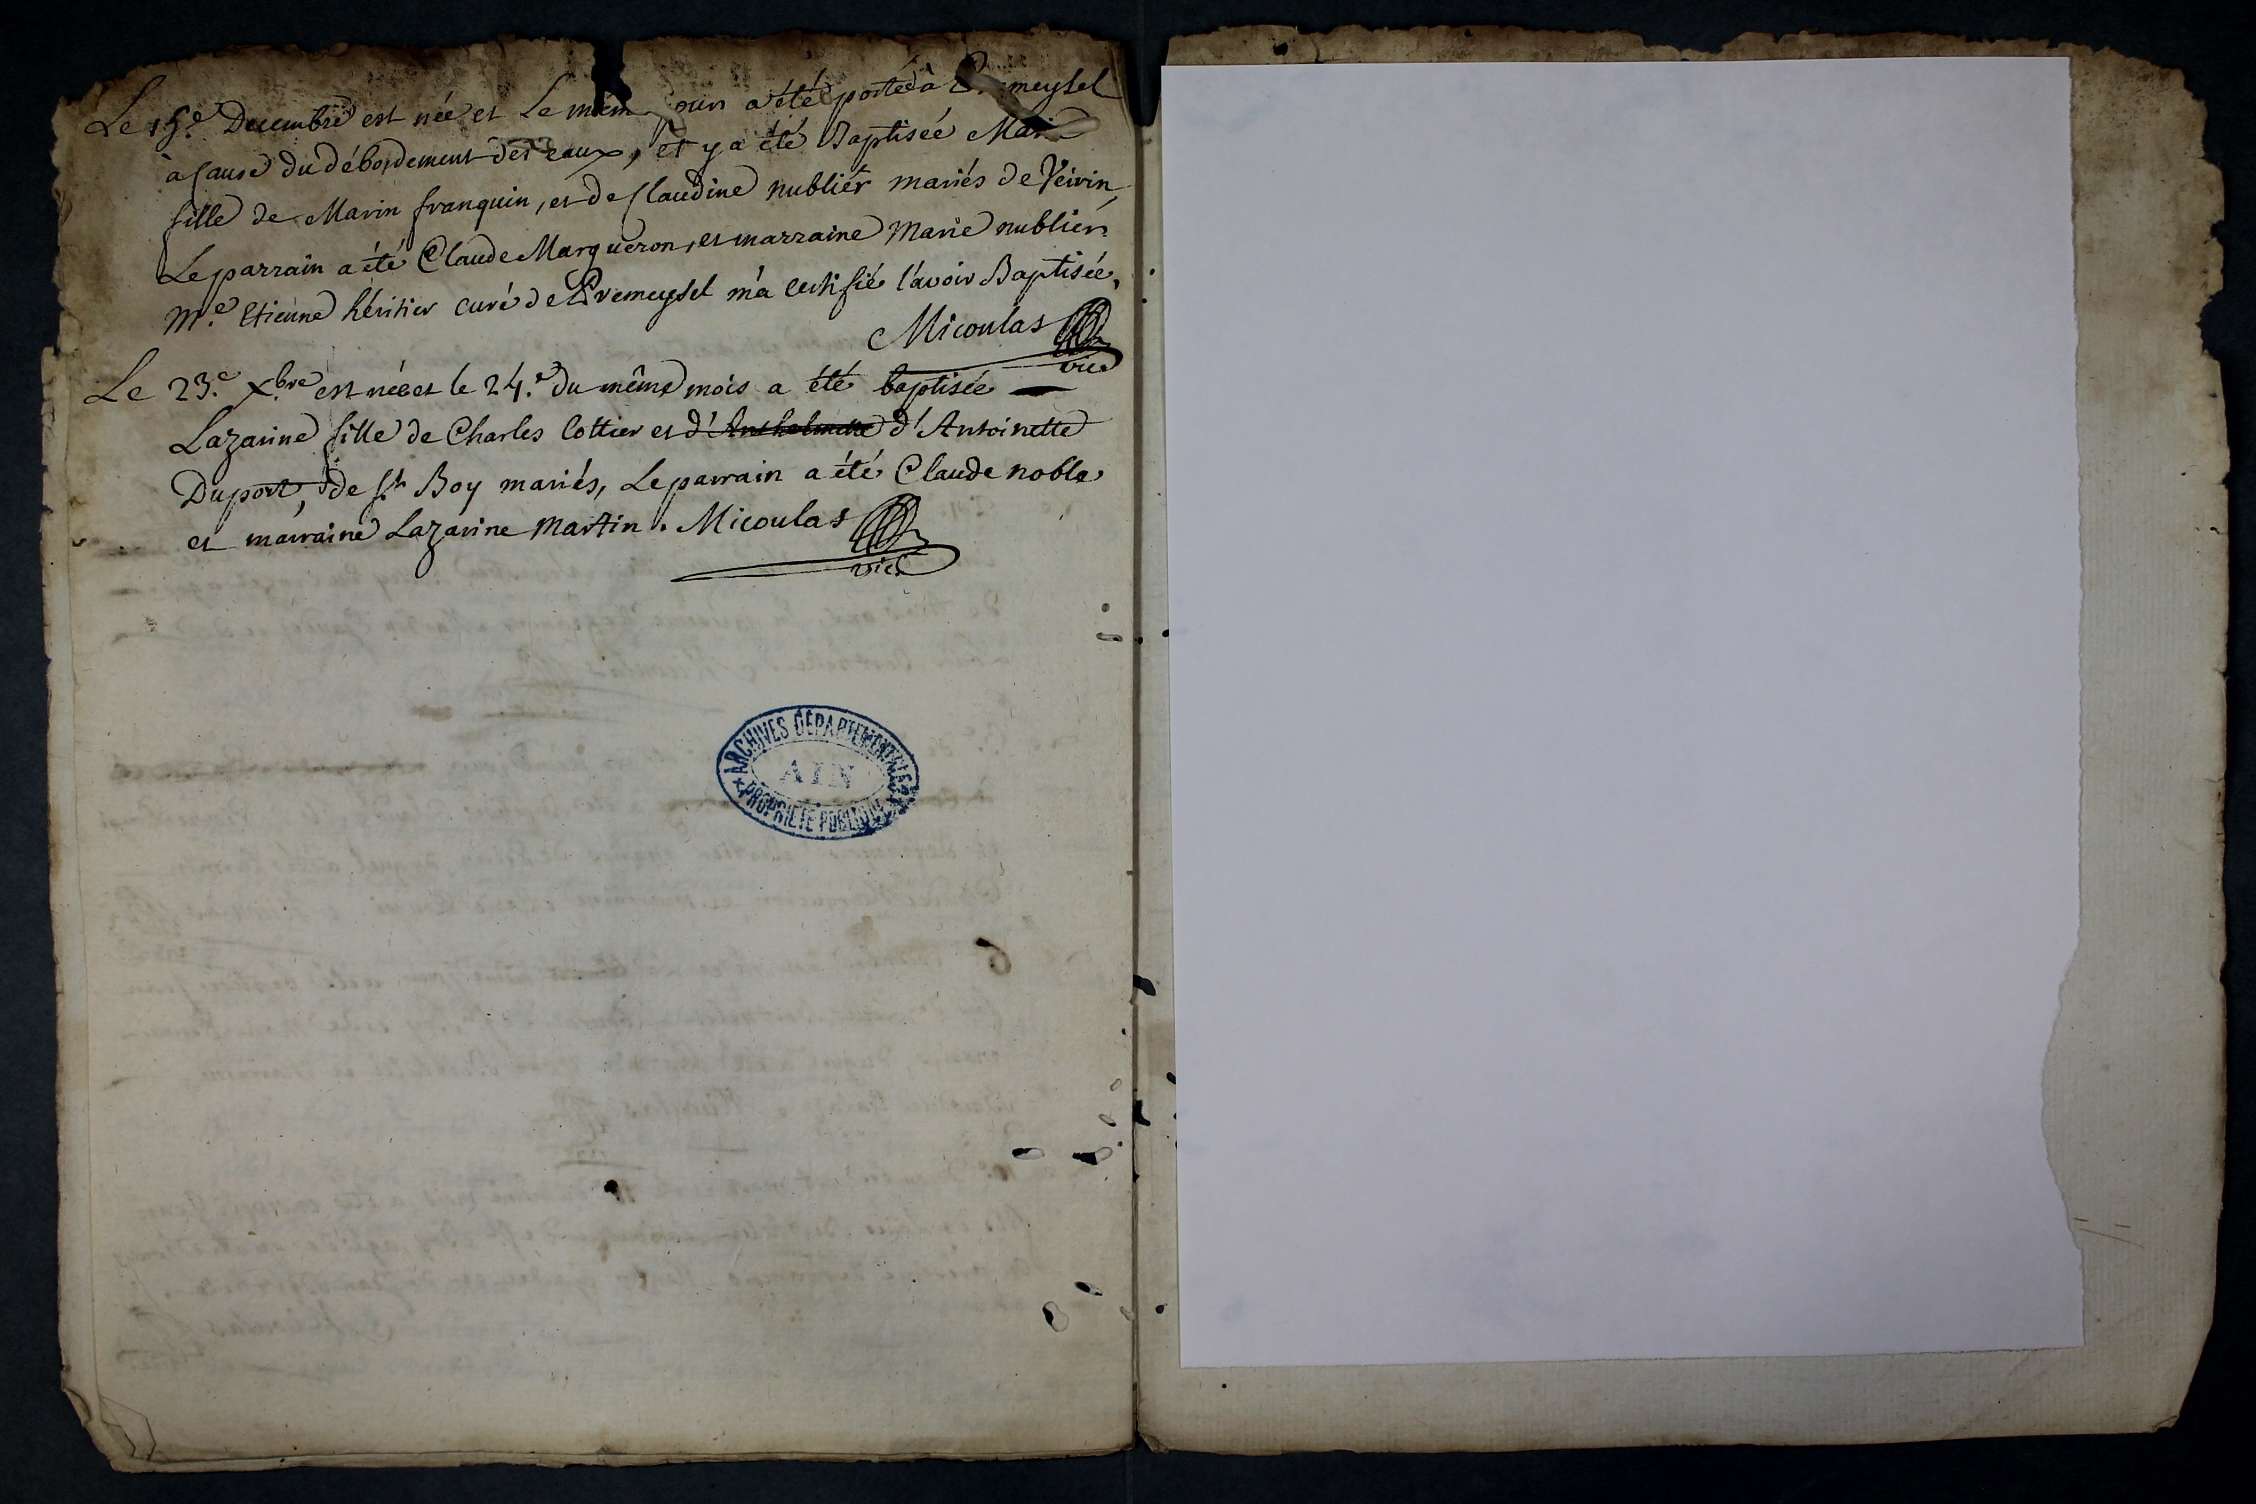 Le 15.e Decembre est née et Le mem jour a été portée à meysel
à cause du débordement des eaux, et y a été Baptisée Marie
fille de Marin franquin, et de Claudine nublier mariés de Veirin
Le parrain a été Claude Marqueron, et marraine Marie nublier.
M.e Etienne héritier curé de Premeysel m'a certifié l'avoir Baptisée,
Micoulas
vic.
Le 23.e Xbre est née et le 24.e du même mois a été baptisée
Lazarine fille de Charles Cottier et d'Anthelmette d'Antoinette
Duport, de St Boy mariés, Le parrain a été Claude noble
et marraine Lazarine Martin. Micoulas
vic.
ARCHIVES DÉPARTEMENTALES
AIN
PROPRIÉTÉ PUBLIQUE